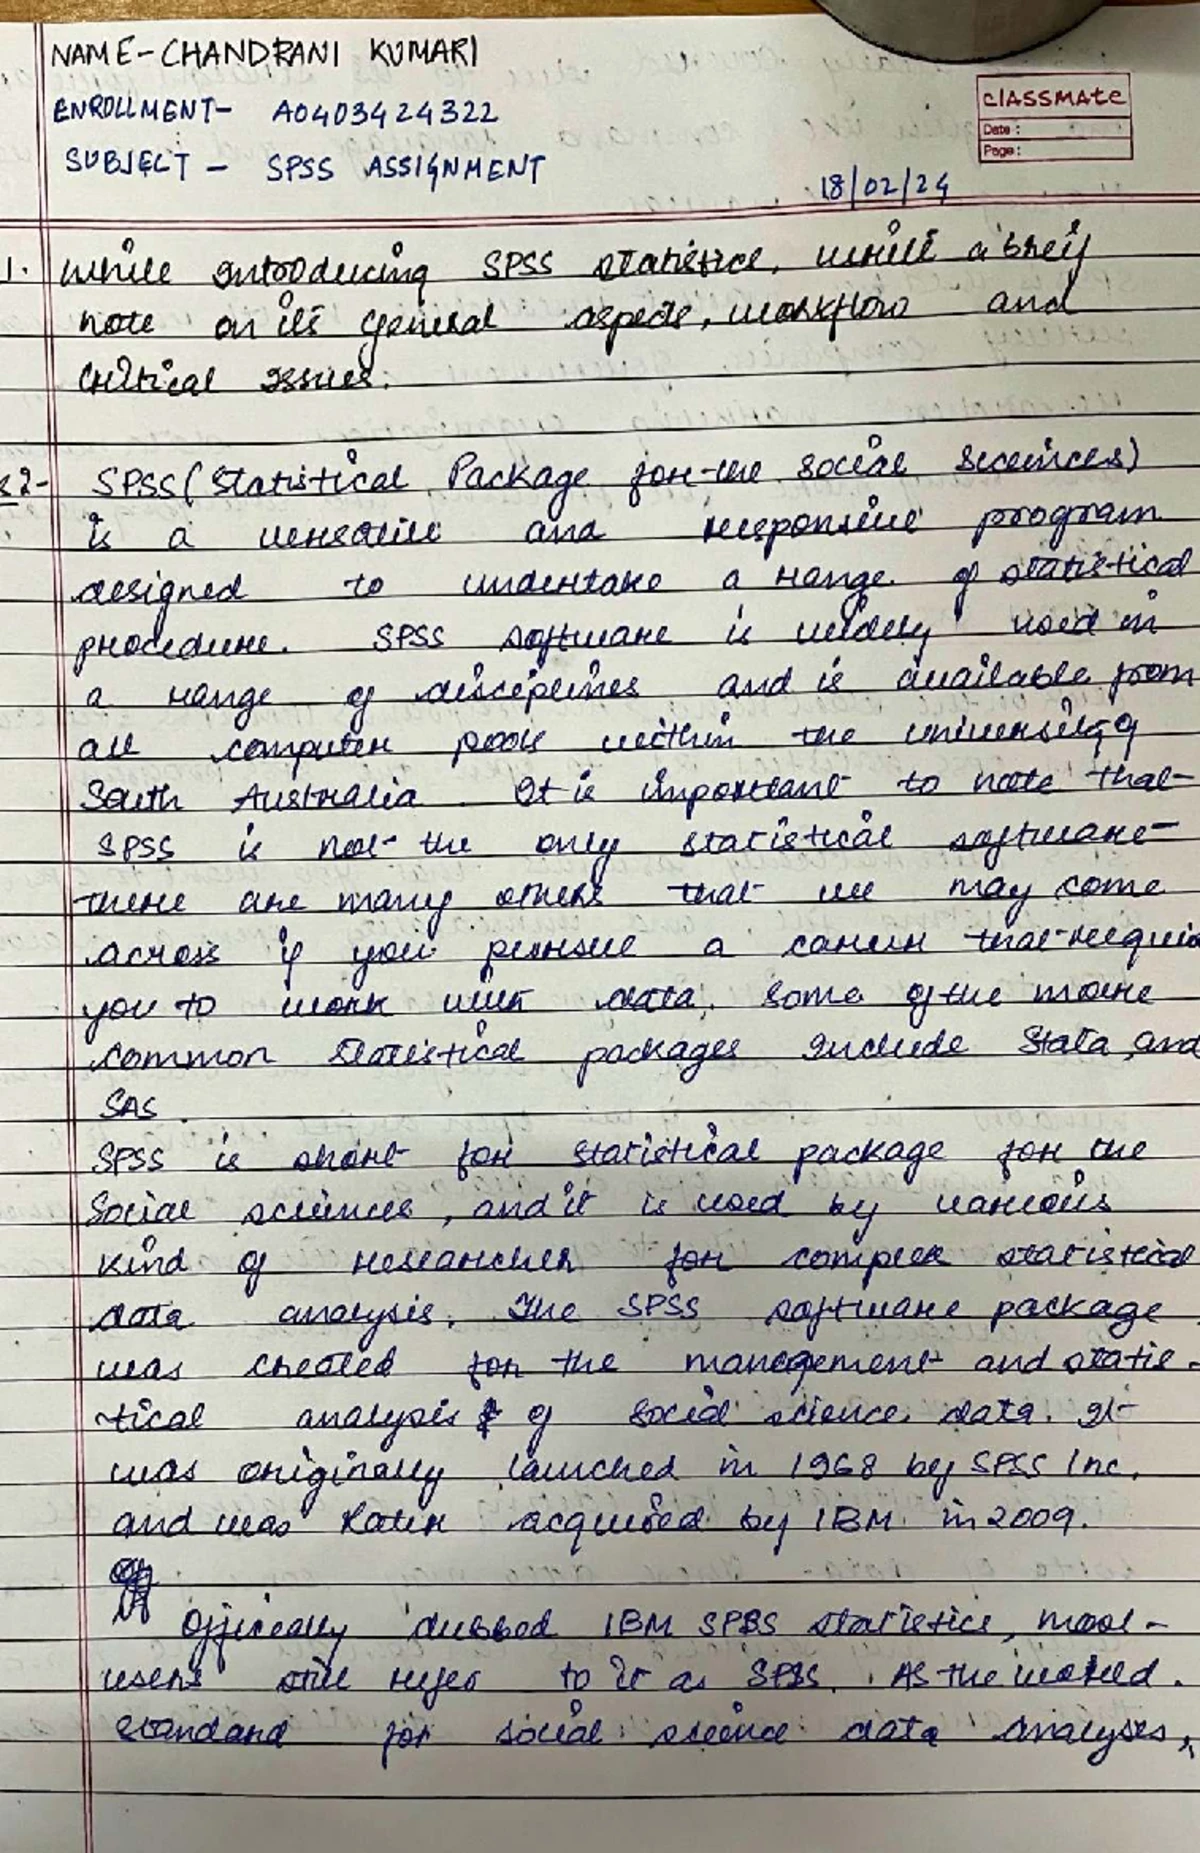 NAME-CHANDRANI KUMARI
ENROLLMENT- A0403424322
SUBJECT - SPSS ASSIGNMENT
classmate
Date :
Page :
18/02/24
1. While introducing SPSS statistics, write a brief
note on its general aspects, workflow and
critical issues.
SPSS (Statistical Package for the social sciences)
is a versatile and responsive program
designed to undertake a range of statistical
procedure. SPSS software is widely used in
a range of disciplines and is available from
all computer pools within the university of
South Australia. It is important to note that
SPSS is not the only statistical software-
there are many others that we may come
across if you pursue a career that require
you to work with data. Some of the more
common statistical packages include Stata and
SAS
SPSS is short for statistical package for the
Social sciences, and it is used by various
kind of researcher for complex statistical
data analysis. The SPSS software package
was created for the management and statis-
tical analysis of social science data. It
was originally launched in 1968 by SPSS Inc.
and was later acquired by IBM in 2009.
Officially dubbed IBM SPSS statistics, most
users still refer to it as SPSS. As the world
standard for social science data analyses,